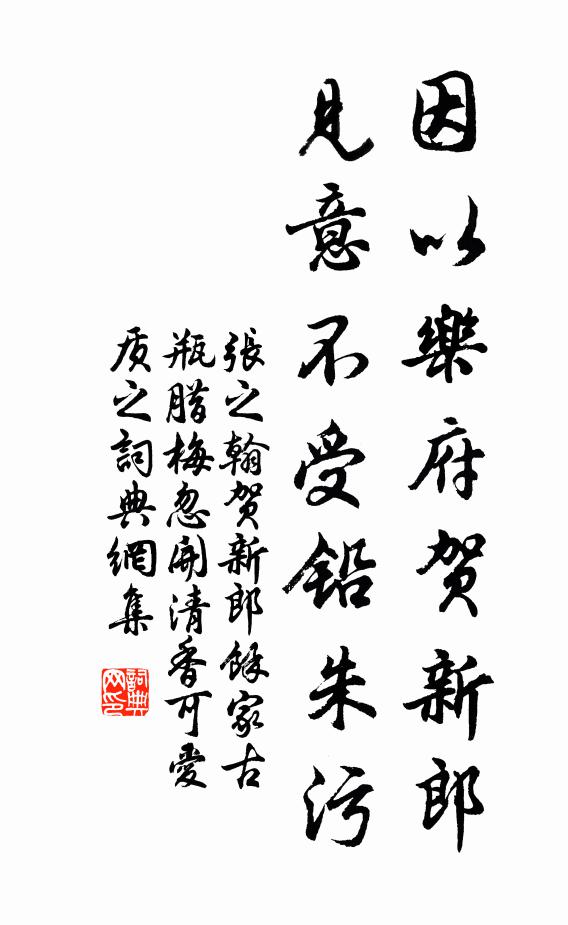 因以樂府賀新郎
見意不受鉛朱污
張之翰賀新郎餘家古
瓶腊梅忽開清香可愛
质之詞典網集
詞典
网印